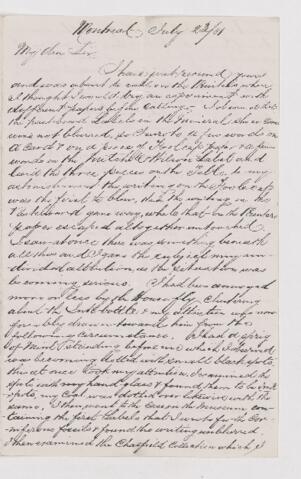 Montreal July 22/81
My Dear Sir.
I have just received yours
and was about to call on the
I thought I would try an experiment with
different papers before calling.
the pasteboard labels on the Mineral
was not blurred, so I wrote a few words on
a card & on a piece of Foolscap paper & a few
words on the Label and
laid the three pieces on the Table to my
astonishment the writing on the Foolscap
was the first to blur, then the writing on the
Pasteboard gave way, while that on the
paper escaped altogether untouched
I saw at once there was something beneath
all this and I gave the subject my un-
divided attention, as the situation was
becoming serious. I had been annoyed
more or less by the House fly clustering
about the Ink bottle & my attention was now
forcibly drawn towards him from the
following circumstance. I had a sprig
of before me which I observed
was becoming dotted with small black spots
this at once took my attention I examined the
spots with my hand glass & found them to be ink
spots, my Coat was dotted over likewise with the
same, I then went to the cases in the museum con-
taining the first labels that I wrote for the
fossils & found the writing unblurred
I then examined the Chatfield Collection which I